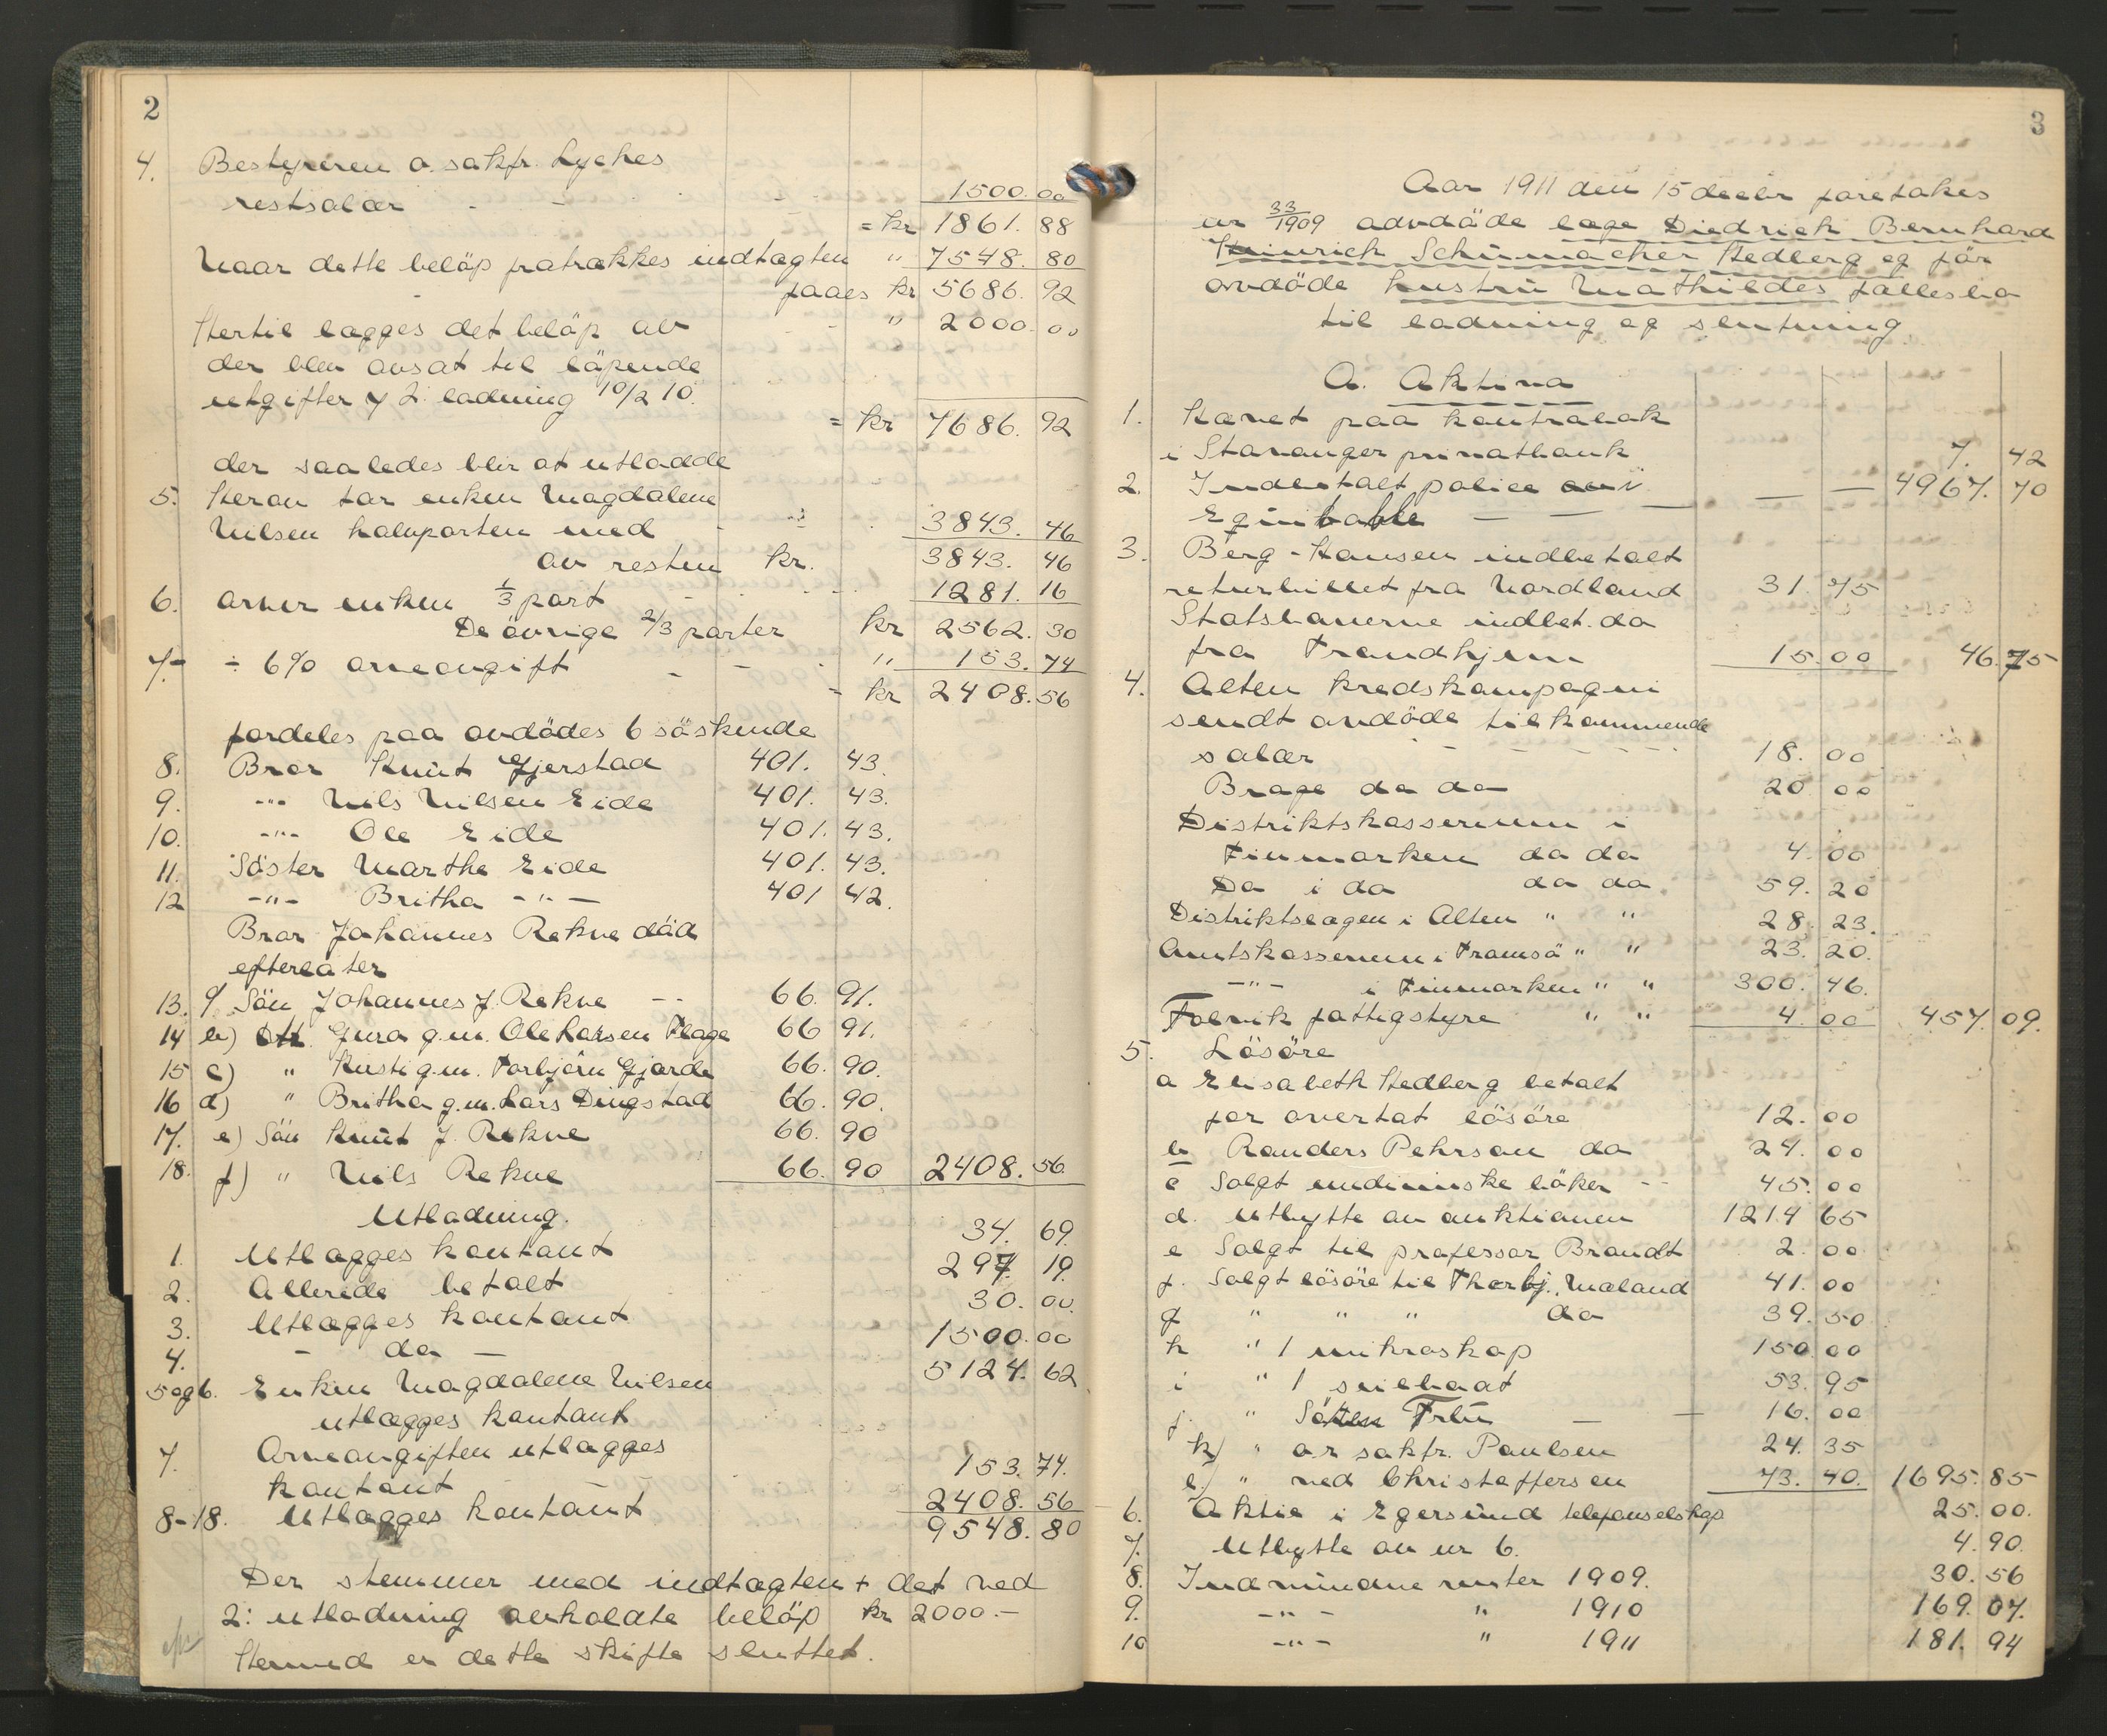 2
4. Bestyreren o. sakfr. Lyches
restsalær - - - 1500. 00
= kr 1861. 88
Naar dette beløp fratrækkes indtægten " 7548. 80
faaes kr 5686. 92
Hertil lægges det beløp av " 2000. 00
der blev avsat til løpende
utgifter v 2. lodning 10/2 10.
= kr 7686. 92
der saaledes blir at utlodde
5. Herav tar enken Magdalene
Nilsen halvparten med 3843. 46
av resten kr. 3843. 46
6. arver enken 1/3 part 1281. 16
De övrige 2/3 parter kr 2562. 30
7- ÷ 6% arveavgift - - " 153. 74
= kr 2408. 56
fordeles paa avdödes 6 söskende
8. Bror Knut Gjerstad 401. 43.
9. -"- Nils Nilsen Eide 401. 43.
10. -"- Ole Eide 401. 43.
11. Söster Marthe Eide 401. 43.
12 -"- Britha -"- 401 42.
Bror Johannes Rekve död
efterlater
13. a/ Sön Johannes J. Rekve -- 66. 91.
14 b) Dtt. Gura g.m. Ole Larsen Flage 66 91.
15 c) " Kusti g.m. Torbjörn Gjerde 66. 90.
16 d) " Britha g.m. Lars Dingstad 66. 90.
17. e) Sön Knut J. Rekve 66. 90
18. f) " Nils Rekve 66. 90 2408. 56
Utlodning.
1. Utlægges kontant 34. 69.
2. Allerede betalt 297 19.
3. Utlægges kontant 30. 00.
4. - do - 1500. 00
5 og 6. Enken Magdalene Nilsen 5124. 62
utlægges kontant
7. Arveavgiften utlægges
kontant 153. 74.
8-18. Utlægges kontant 2408. 56
9548. 80
Der stemmer med indtægten + det ved
2: utlodning avholdte beløp kr 2000.-
Hermed er dette skifte sluttet.
3
Aar 1911 den 15 decbr foretokes
nr 33/1909 avdöde læge Diedrich Bernhard
Heinrich Schumacher Hedberg og för
avdöde hustru Mathildes fællesbo
til lodning og slutning.
A. Aktiva
1. Hævet paa kontrabok
i Stavanger privatbank 7. 42
2. Indbetalt police av
Equitable - - - 4967. 70
3. Berg-Hansen indbetalt
returbillet fra Nordland 31. 75
Statsbanerne indbet. do
fra Trondhjem 15. 00 46. 75
4. Alten kredskompagni
sendt avdöde tilkommende
salær - - - 18. 00
Brage do do 20 00
Distriktskassereren i
Finmarken do do 4. 00
Do i do do do. 59. 20
Distriktslægen i Alten " " 28. 23.
Amtskassereren i Tromsö " " 23. 20.
-"- i Finmarken " " 300. 46.
Talvik fattigstyre " " 4. 00 457. 09.
5. Lösöre
a Elisabeth Hedberg betalt
for overtat lösöre 12. 00
b Randers Pehrson do 24. 00
c Solgt medicinske böker -- 45. 00
d. Utbytte av auktionen 1214 65
e Solgt til professor Brandt 2. 00
f. Solgt lösöre til Thorbj. Maland 41. 00
g " " " do 39. 50
h " 1 mikroskop 150. 00
i " 1 seilbaat 53. 95
j. " Frue - - 16. 00
k) " o.r. sakfr. Paulsen 24. 35
l.) " ved Christoffersen 73. 40. 1695. 85
6. Aktie i Egersund telefonselskap 25. 00.
7. Utbytte av nr 6. 4. 90.
8. Indvundne renter 1909. 30. 56
9. -"- " 1910 169. 07.
10 -"- " 1911 181. 94